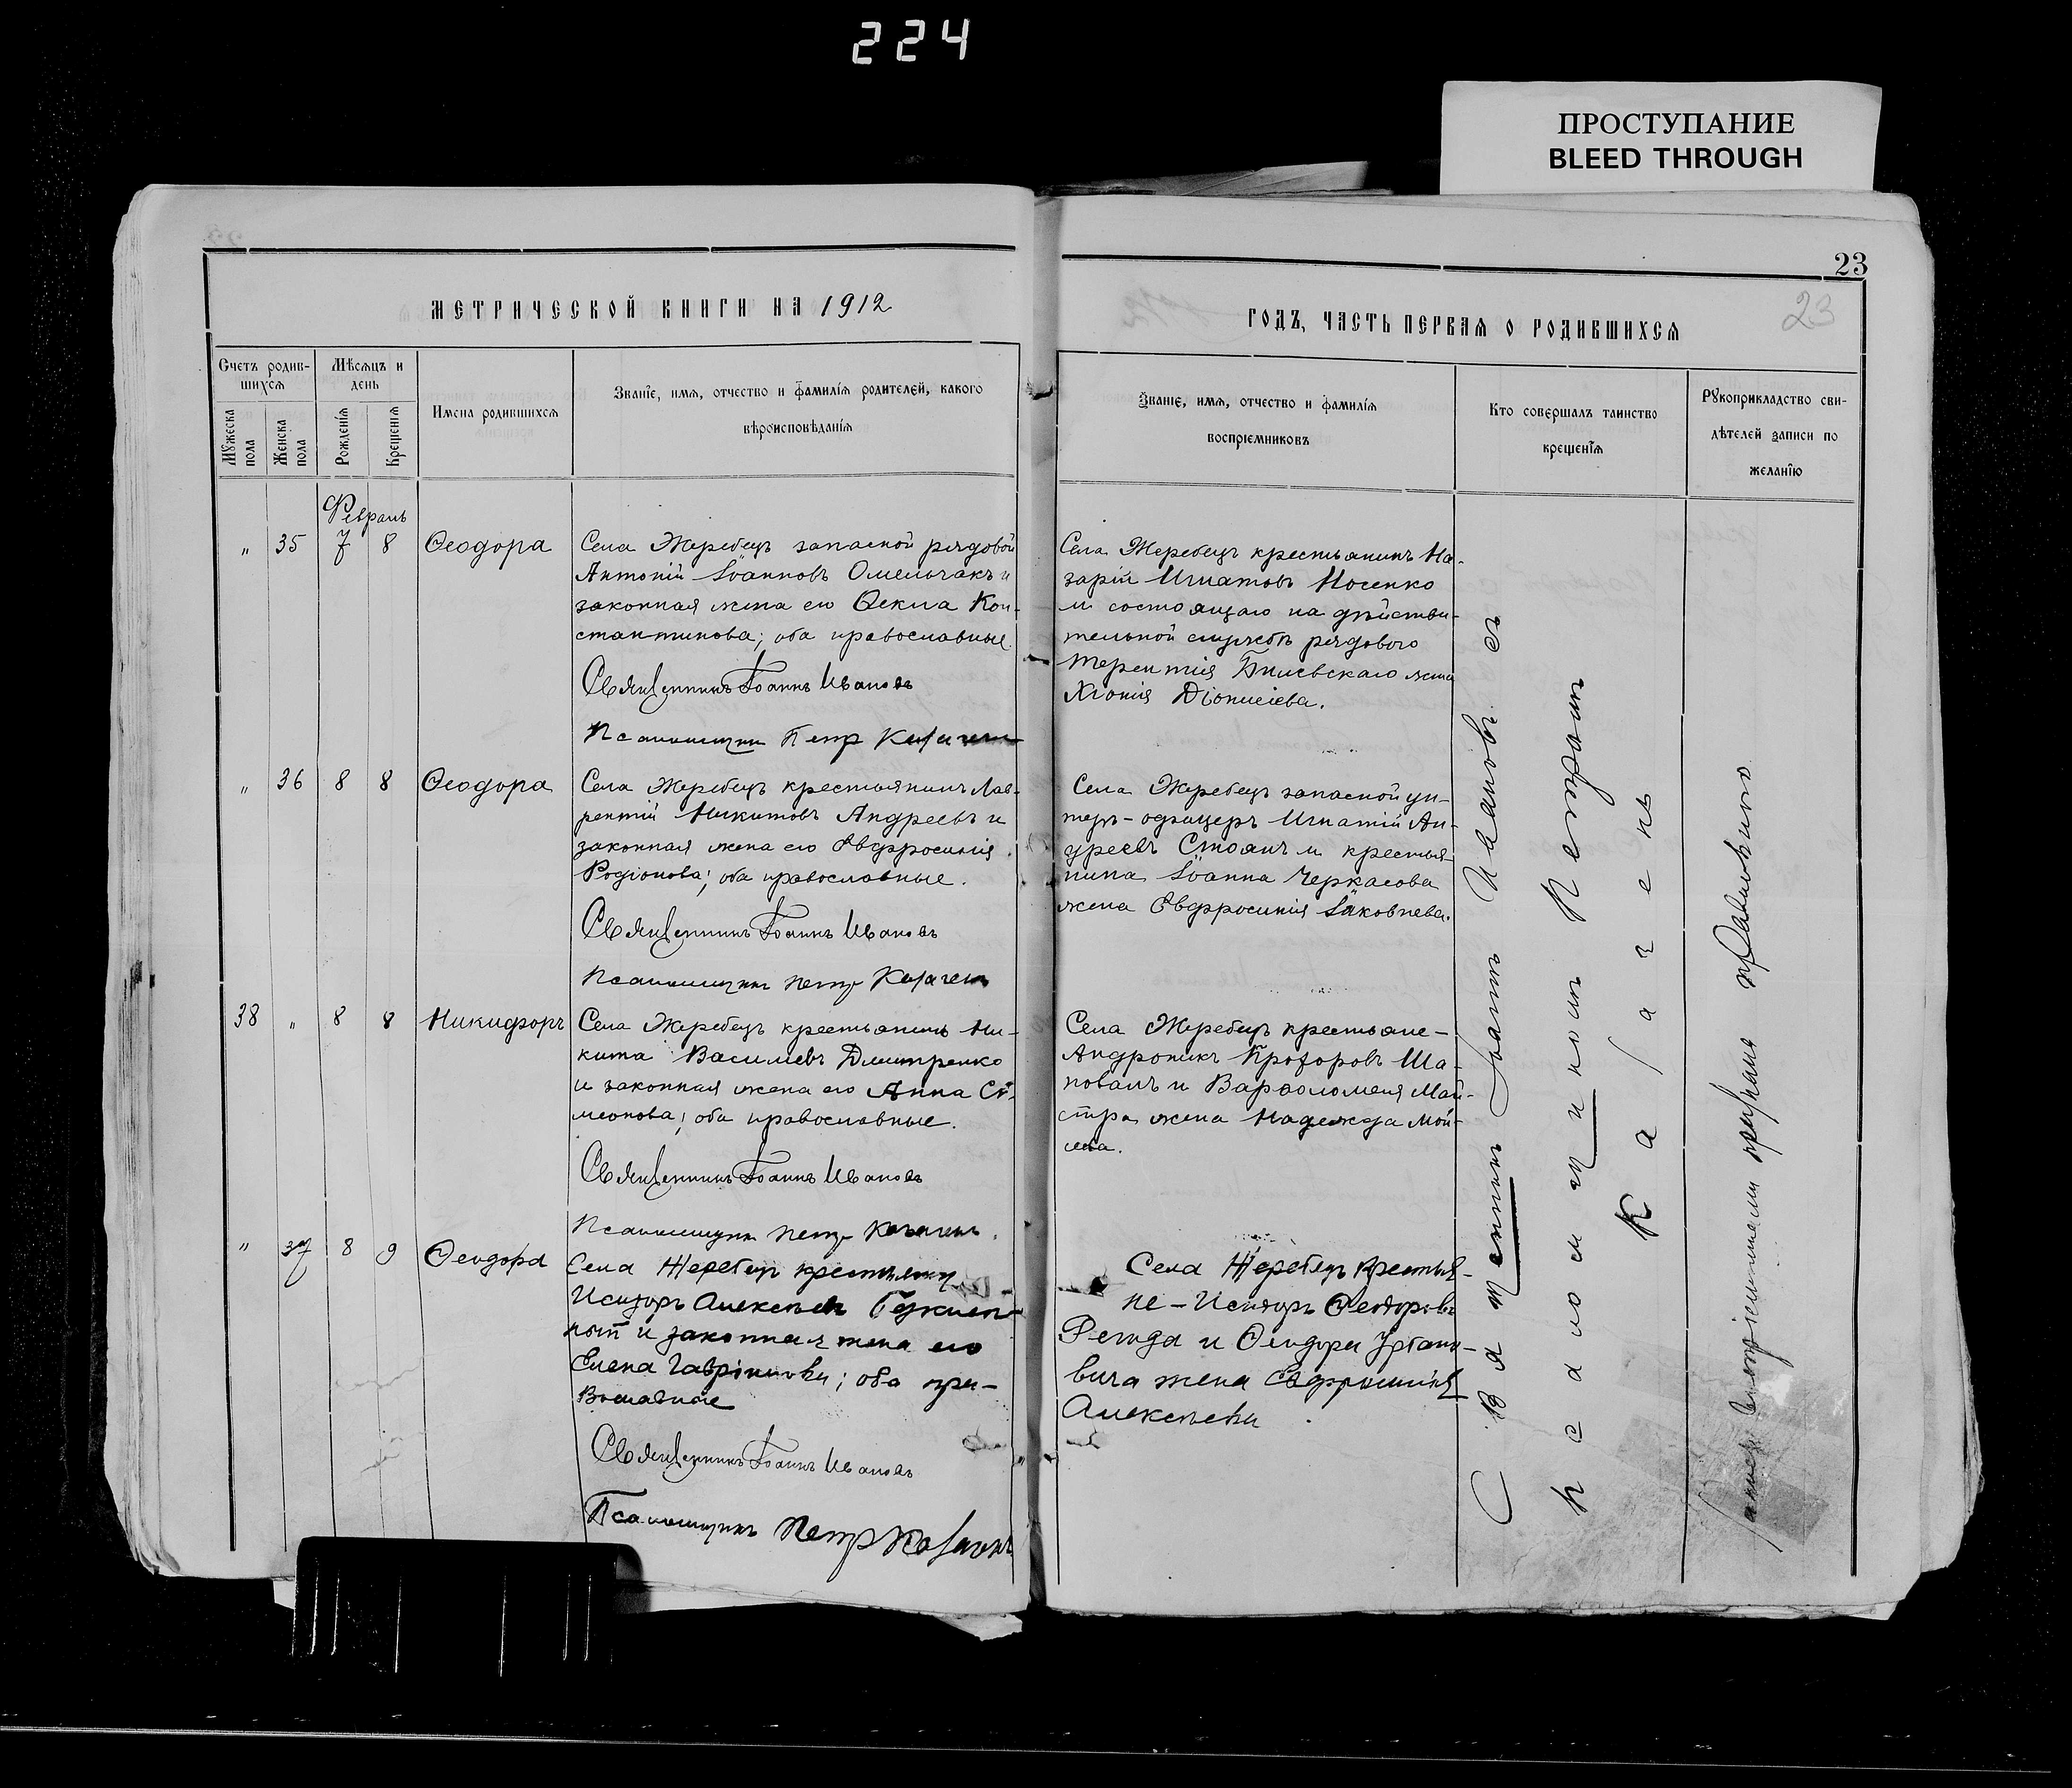 224
ПРОСТУПАНИЕ
BLEED THROUGH
23
23
МЕТРИЧЕСКОЙ КНИГИ НА 1912
ГОДЪ, ЧАСТЬ ПЕРВАЯ О РОДИВШИХСЯ
Счетъ родив-
шихся
Мѣсяцъ и
день
Мужеска
пола
Женска
пола
Рожденія
Крещенія
Имена родившихся
Званіе, имя, отчество и фамилія родителей, какого
вѣроисповѣданія
Званіе, имя, отчество и фамилія
воспріемниковъ
Кто совершалъ таинство
крещенія
Рукоприкладство сви-
дѣтелей записи по
желанію
Февраль
" 35 7 8 Ѳеодора
Села Жеребецъ запасной рядовой
Антоній Іоанновъ Омельчакъ и
законная жена его Ѳекла Кон-
стантинова; оба православные.
Священникъ Іоаннъ Ивановъ
Псаломщикъ Петр Казачекъ
Села Жеребецъ крестьянинъ На-
зарій Игнатовъ Носенко
и состоящаго на дѣйстви-
тельной службѣ рядового
Терентія жена
Хіонія Діонисіева.
" 36 8 8 Ѳеодора
Села Жеребецъ крестьянинъ Лав-
рентій Никитовъ Андреевъ и
законная жена его Евфросинія
Родіонова; оба православные.
Священникъ Іоаннъ Ивановъ
Псаломщикъ Петр Казачекъ
Села Жеребецъ запасной ун-
теръ-офицеръ Игнатій Ан-
дреевъ Стоянъ и крестья-
нина Іоанна Черкасова
жена Евфросинія Іаковлева.
38 " 8 8 Никифоръ
Села Жеребецъ крестьянинъ Ни-
кита Василіевъ Дмитренко
и законная жена его Анна Си-
меонова; оба православные.
Священникъ Іоаннъ Ивановъ
Псаломщикъ Петр Казачекъ.
Села Жеребецъ крестьяне-
Андроникъ Прохоровъ Ша-
повалъ и Варѳоломея Май-
стра жена Надежда Мои-
сеева.
" 37 8 9 Ѳеодора
Села Жеребецъ крестьянинъ
Исидоръ Алексѣевъ
и законная жена его
Елена Гавріилова; оба пра-
вославные
Священникъ Іоаннъ Ивановъ
Псаломщикъ Петр Казачекъ
Села Жеребецъ крестья-
не-Исидоръ Ѳеодоровъ
и Ѳеодора Урбано-
вича жена Евфросинія
Алексѣева.
Священникъ Іоаннъ Ивановъ съ
псаломщикомъ Петромъ
Казачекъ